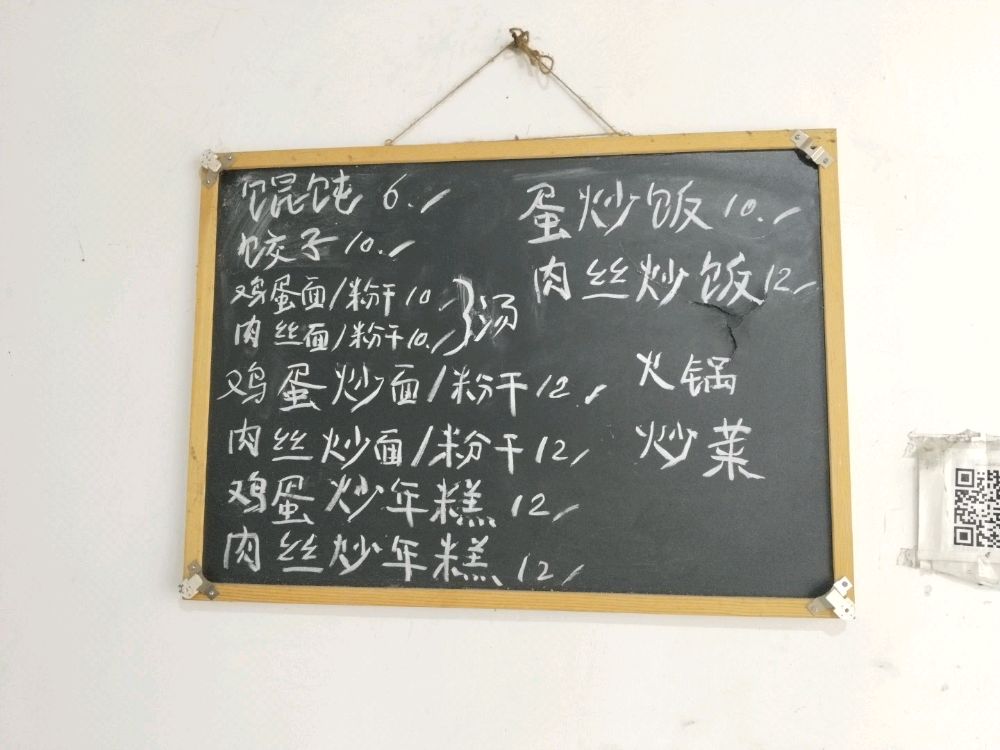 馄饨 6.
饺子 10.
鸡蛋面/粉干 10
肉丝面/粉干 10.
}汤
鸡蛋炒面/粉干 12.
肉丝炒面/粉干 12
鸡蛋炒年糕 12
肉丝炒年糕 12
蛋炒饭 10.
肉丝炒饭 12
火锅
炒菜